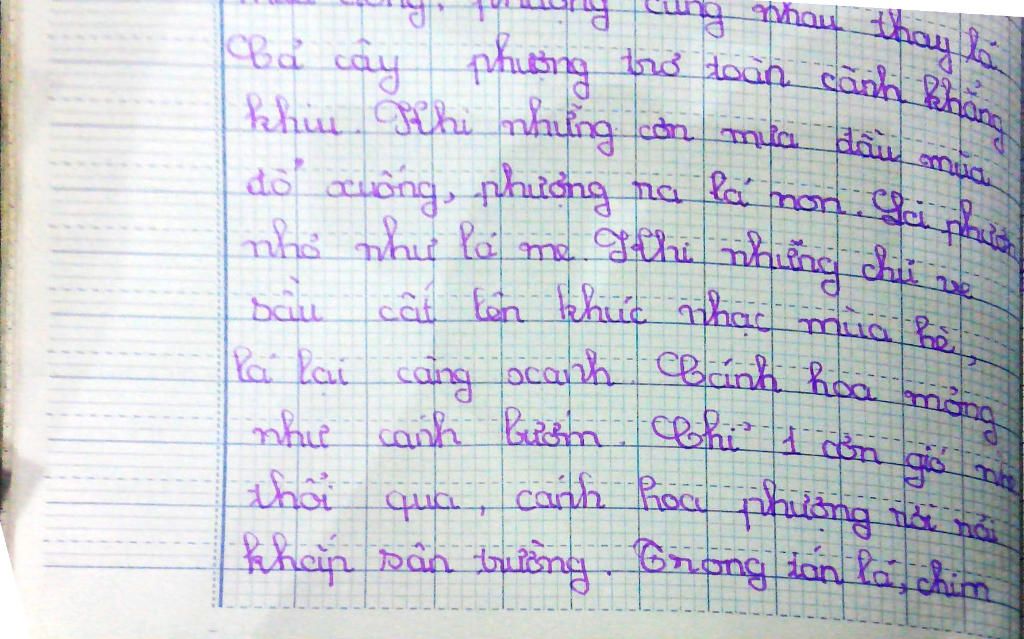 phượng cùng nhau thay lá
Cả cây phượng trơ toàn cành khẳng
khiu. Khi những cơn mưa đầu mùa
đổ xuống, phượng ra lá non. Lá phượn
nhỏ như lá me. Khi những chú ve
sầu cất lên khúc nhạc mùa hè,
lá lại càng xanh. Cánh hoa mỏng
như cánh bướm. Chỉ 1 cơn gió nhẹ
thổi qua, cánh hoa phượng rơi rơi
khắp sân trường. Trong tán lá, chim